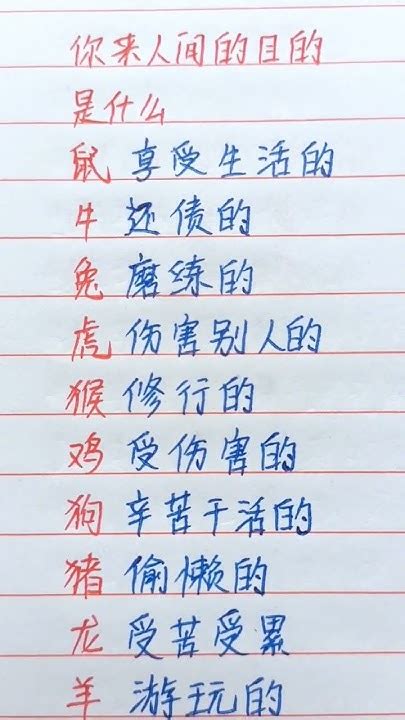 你来人间的目的
是什么
鼠 享受生活的
牛 还债的
兔 磨练的
虎 伤害别人的
猴 修行的
鸡 受伤害的
狗 辛苦干活的
猪 偷懒的
龙 受苦受累
羊 游玩的